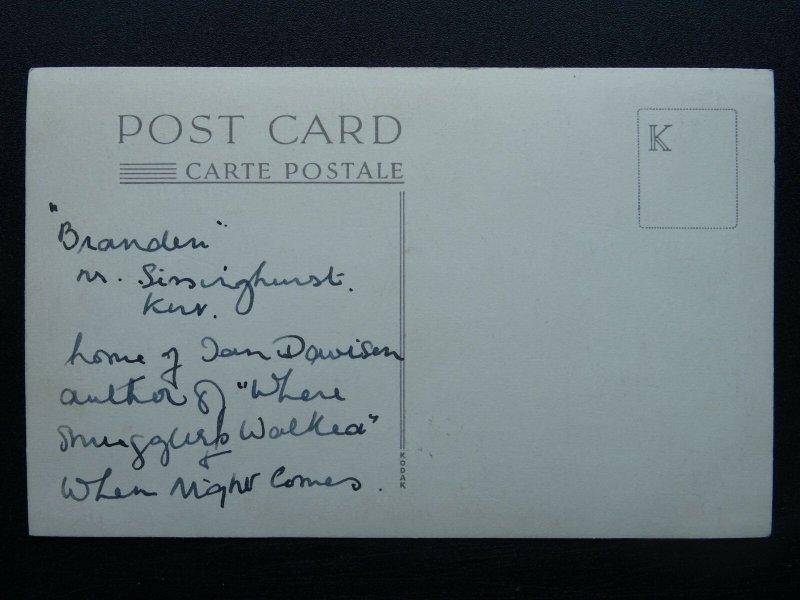 POST CARD
CARTE POSTALE
K
"Branden"
nr. Sissinghurst.
Kent.
home of Ian Davison
author of "Where
Smugglers Walked"
&
When Night Comes.
KODAK